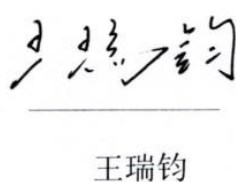 王瑞钧
王瑞钧